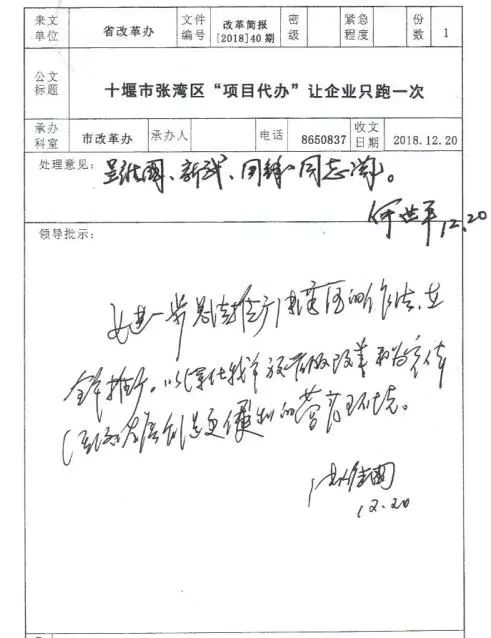 来文单位 省改革办 文件编号 改革简报[2018]40期 密级 紧急程度 份数 1
公文标题 十堰市张湾区“项目代办”让企业只跑一次
承办科室 市改革办 承办人 电话 8650837 收文日期 2018.12.20
处理意见：呈维国、新武、同志阅。
何世平 12.20
领导批示：
进一步总结推广张湾区的作法，在
全市推广，以深化我市放管服改革
创造更便利的营商环境。
维国
12.20